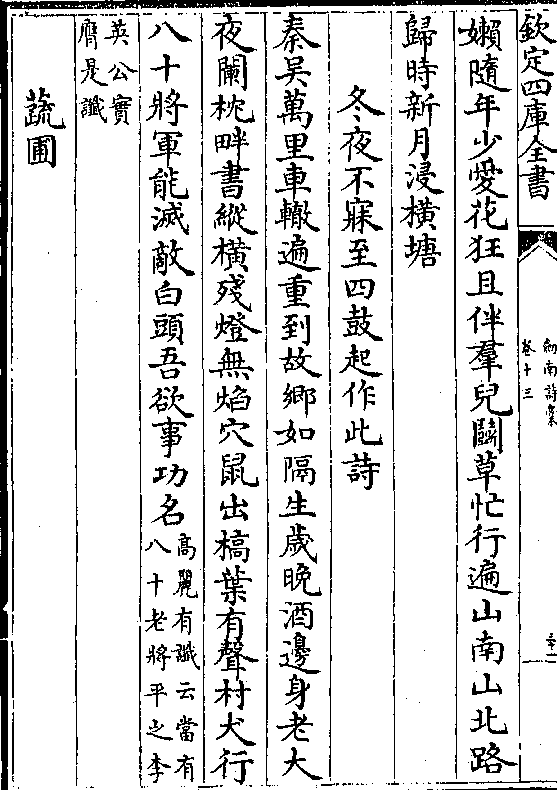 欽定四庫全書
劍南詩槀
卷十三
嬾隨年少愛花狂且伴羣兒鬬草忙行遍山南山北路
歸時新月浸橫塘
冬夜不寐至四鼓起作此詩
秦吳萬里車轍遍重到故鄉如隔生歲晚酒邊身老大
夜闌枕畔書縱橫殘燈無焰穴鼠出槁葉有聲村犬行
八十將軍能滅敵白頭吾欲事功名
高麗有讖云當有
八十老將平之李
英公實
膺是讖
蔬圃